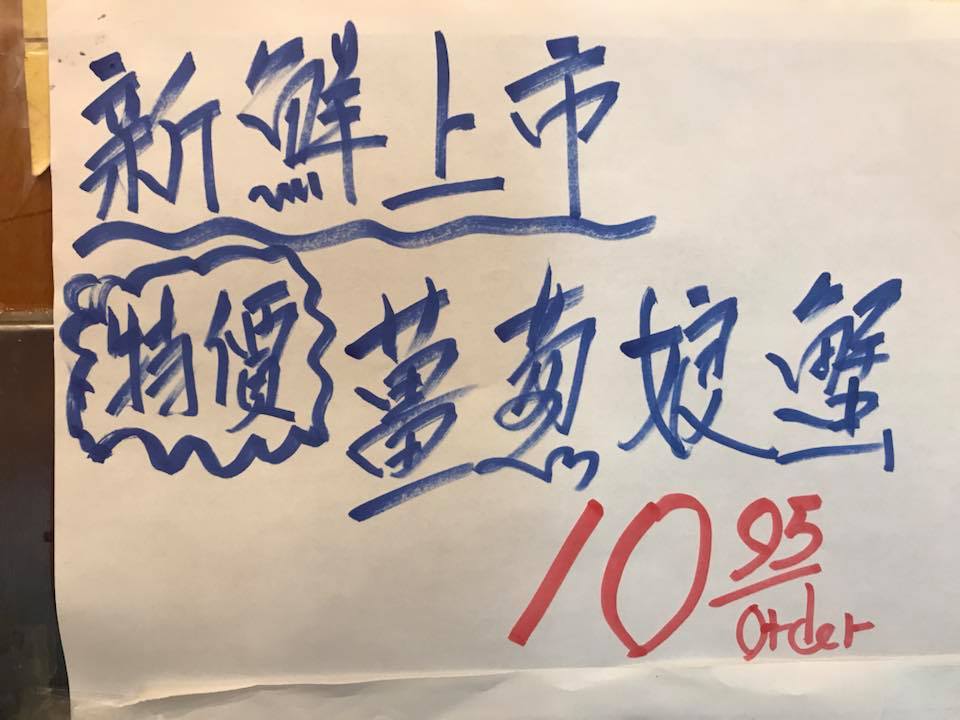 新鮮上市
特價 薑蔥娘蟹
10 95/order